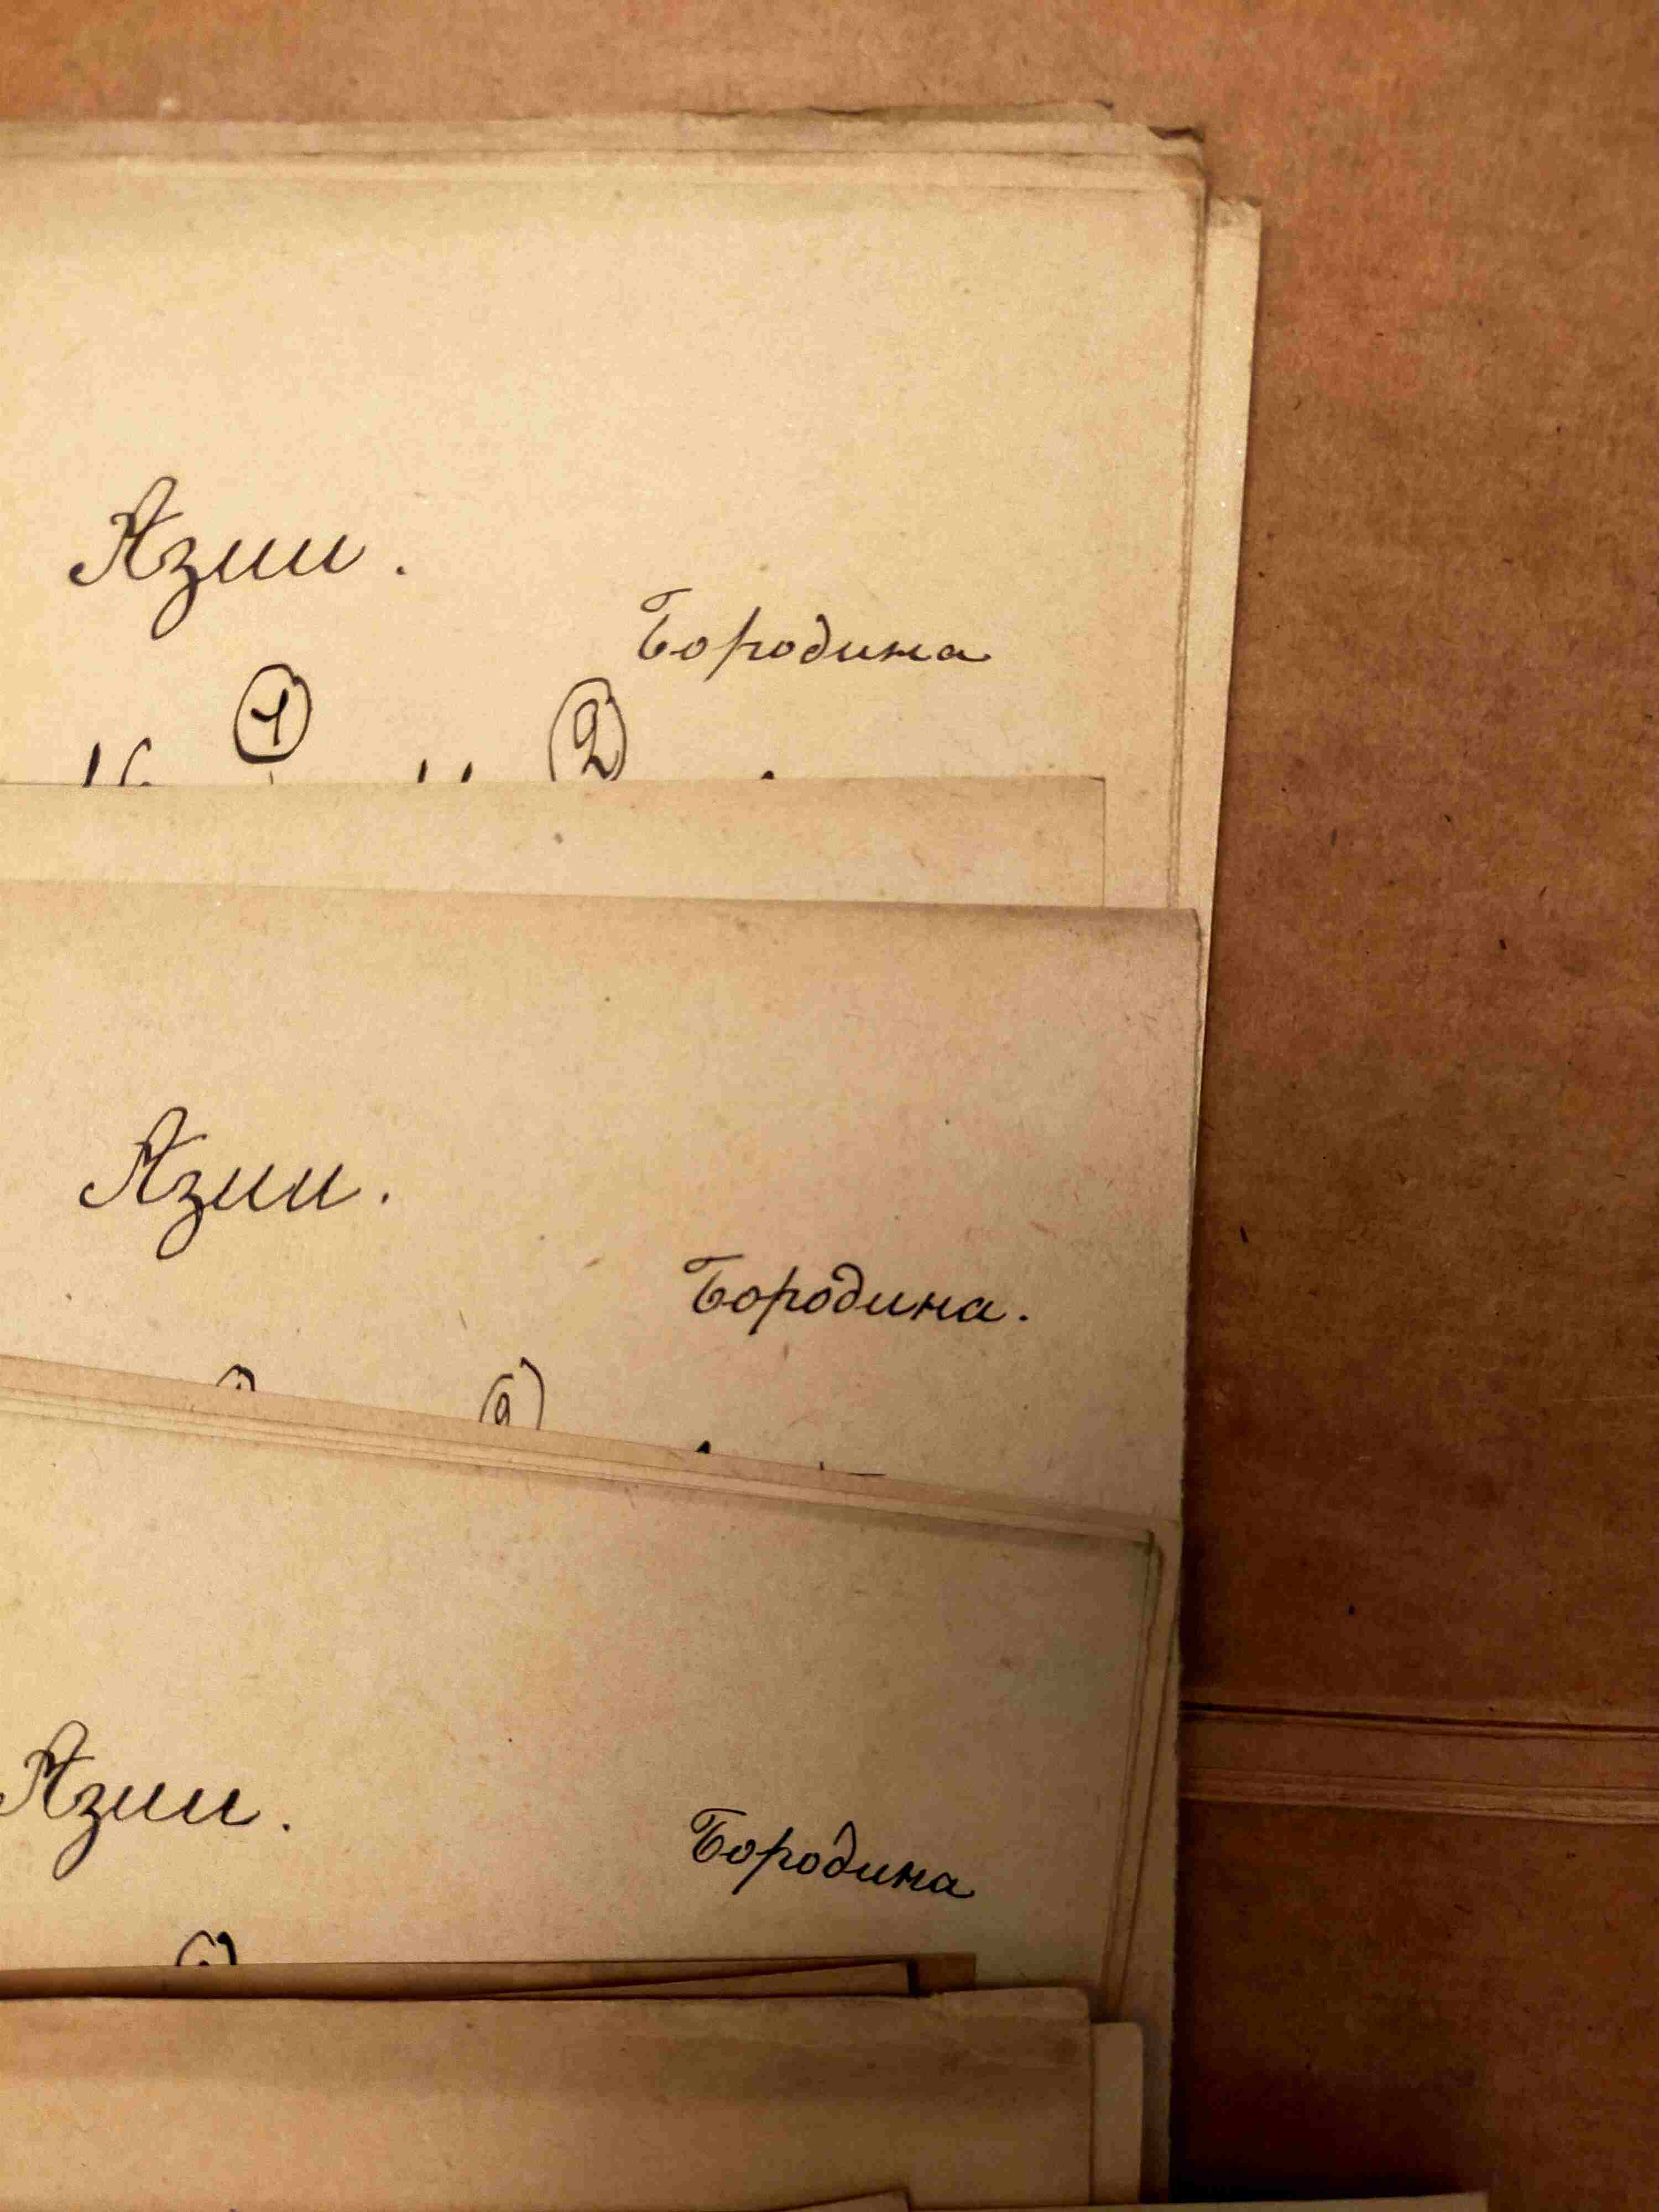 Азии.
Бородина
1 2
Азии.
Бородина.
Азии.
Бородина